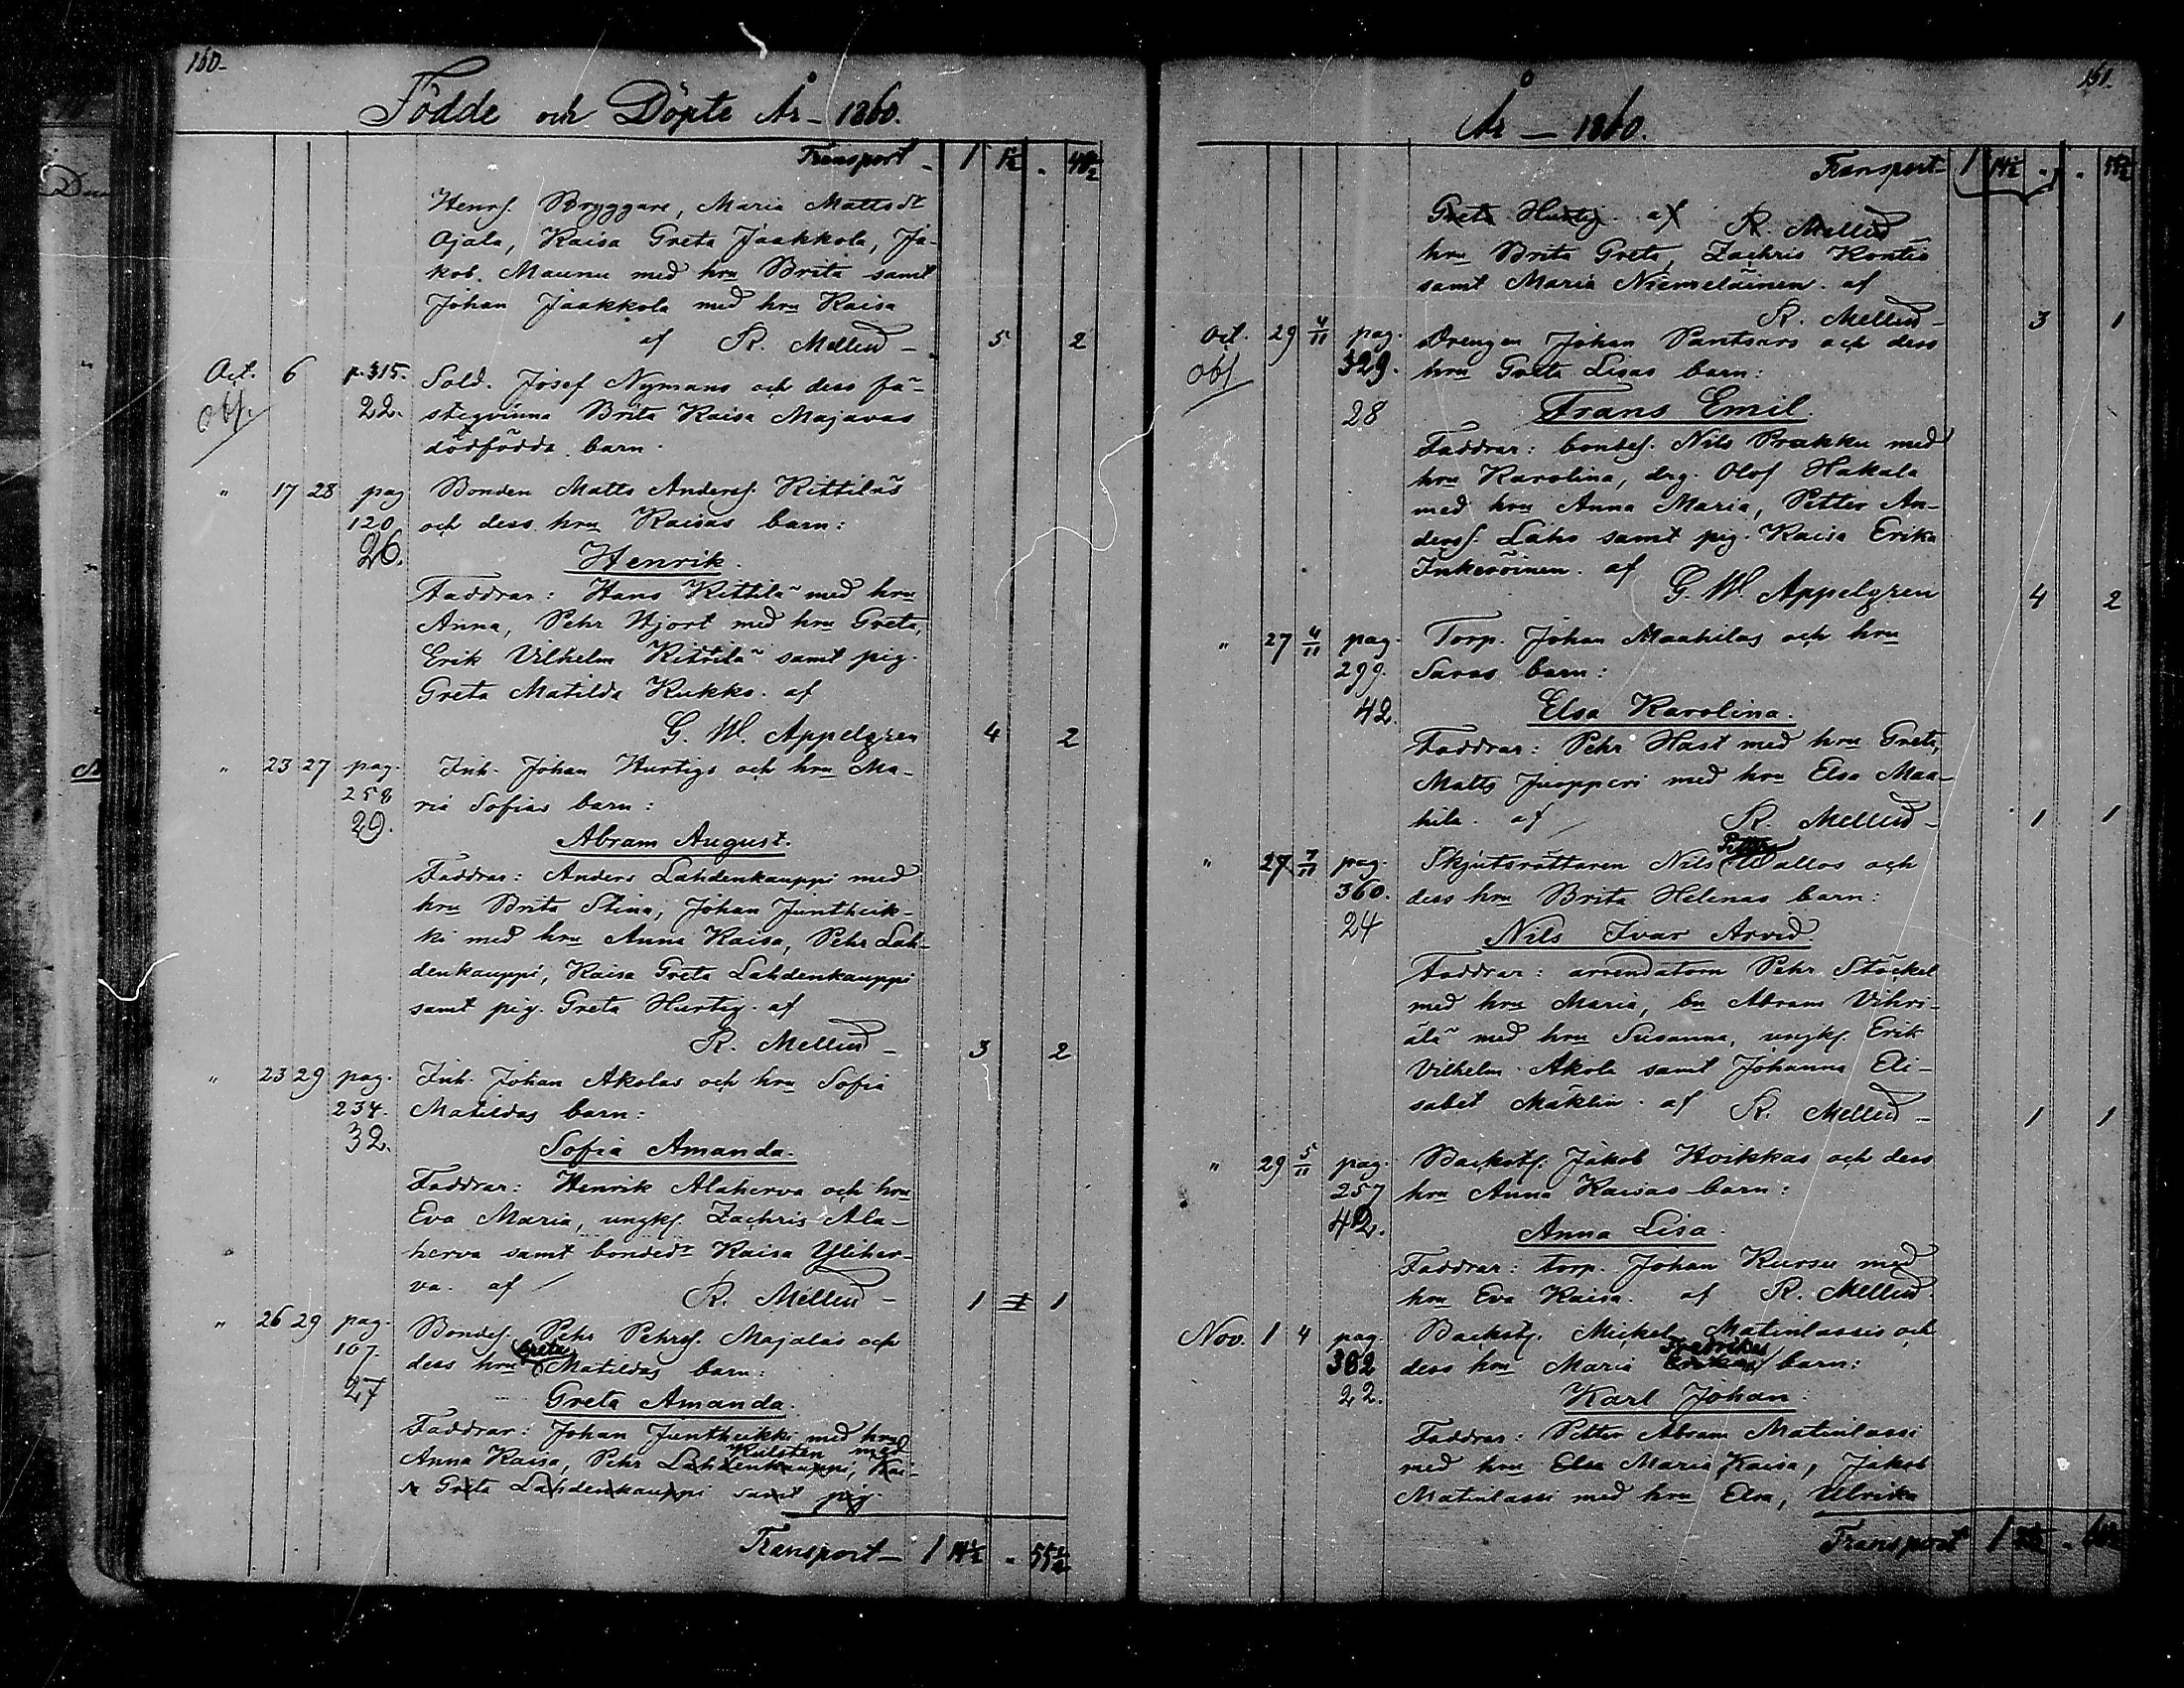 160.
Födde och Döpte År - 1860.
Transport - 1 1½ " 48½
Henrs. Bryggare, Maria Mattsdr
Ojala, Kaisa Greta Jaakkola, Ja-
kob Maunu med hru Brita samt
Johan Jaakkola med hru Kaisa
af R. Mellin - 5 2
Oct. 6 p. 315. Sold. Josef Nymans och dess fä-
Obs. 22. steqvinna Brita Kaisa Majavas
dödfödda barn.
" 17 28 pag Bonden Matts Anderss. Kittiläs
120 och dess hru Kaisas barn:
26. Henrik.
Faddrar: Hans Kittilä med hru
Anna, Pehr Hjort med hru Greta,
Erik Vilhelm Kittilä samt pig.
Greta Matilda Kukko. af
G. W. Appelgren 4 2
" 23 27 pag. Inh. Johan Hurtigs och hru Ma-
258 ria Sofias barn:
29. Abram August.
Faddrar: Anders Lahdenkauppi med
hru Brita Stina, Johan Juntheik-
ki med hru Anna Kaisa, Pehr Lah-
denkauppi, Kaisa Greta Lahdenkauppi
samt pig. Greta Hurtig. af
R. Mellin - 3 2
" 23 29 pag. Inh. Johan Akolas och hru Sofia
234. Matildas barn:
32. Sofia Amanda.
Faddrar: Henrik Alaherva och hru
Eva Maria, ungk. Zachris Ala-
herva samt bondedr Kaisa Yliher-
va. af R. Mellin - 1 1
" 26 29 pag. Bondes. Pehr Pehrss. Majalas och
107. dess hru Greta Matildas barn:
27 Greta Amanda.
Faddrar: Johan Juntheikki med hru
Anna Kaisa, Pehr Lahdenkauppi, Kai-
Kulsten med
a Greta Lahdenkauppi samt pig.
Transport - 1 14½ " 55½
161.
År - 1860.
Transport - 1 14½ " " 55½
Greta Hurtig. af R. Mellin
hru Brita Greta, Zachris Kontio
samt Maria Niemeläinen. af
R. Mellin - 3 1
Oct. 29 4/11 pag. Drengen Johan Pantsars och dess
Obs 329. hru Greta Lisas barn:
28 Frans Emil.
Faddrar: bondes. Nils Prakku med
hru Karolina, drg. Olof Hakala
med hru Anna Maria, Petter An-
ders. Laho samt pig. Kaisa Erika
Inkeröinen. af
G. W. Appelgren 4 2
" 27 4/11 pag. Torp. Johan Maahilas och hru
299. Saras barn:
42. Elsa Karolina.
Faddrar: Pehr Hast med hru Greta,
Matts Juopperi med hru Elsa Maa-
hila. af R. Mellin - 1 1
" 27 7/11 pag. Skjutsrättaren Nils Petter Wallos och
360. dess hru Brita Helenas barn:
24 Nils Ivar Arvid.
Faddrar: arrendatorn Pehr Stöckel
med hru Maria, bn Abram Vihri-
älä med hru Susanna, ungk. Erik
Vilhelm Akola samt Johanna Eli-
sabet Mäklin. af R. Mellin - 1 1
" 29 5/11 pag. Backsts. Jakob Hoikkas och dess
257 hru Anna Kaisas barn:
42. Anna Lisa.
Faddrar: torp. Johan Kursu med
hru Eva Kaisa. af R. Mellin.
Nov. 1 4 pag. Backsts. Mickel Matinlassis och
Fredrikas
362 dess hru Maria barn:
22. Karl Johan:
Faddrar: Petter Abram Matinlassi
med hru Elsa Maria Kaisa, Jakob
Matinlassi med hru Elsa, Ulrika
Transport 1